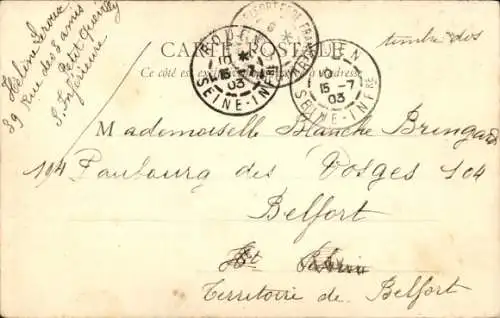 Hélène Giroux
89 Rue des Samis
Petit Quevilly
S. Inférieure
CARTE POSTALE
Ce côté est exclusivement réservé à l'adresse
timbre dos
ROUEN
15 -7
03
SEINE-INFRE
ROUEN
15 -7
03
SEINE-INFRE
Mademoiselle Blanche Bringard
194 Faubourg des Vosges 104
Belfort
Ht Rhin
Territoire de Belfort